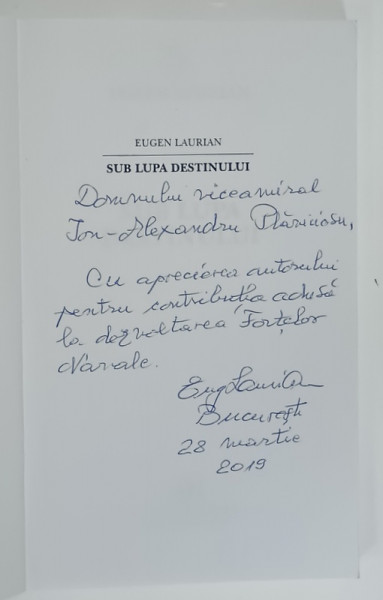 EUGEN LAURIAN
SUB LUPA DESTINULUI
Domnului viceamiral
Ion-Alexandru Plăviciosu,
Cu aprecierea autorului
pentru contribuția adusă
la dezvoltarea Forțelor
Navale.
EugLaurian
București
28 martie
2019